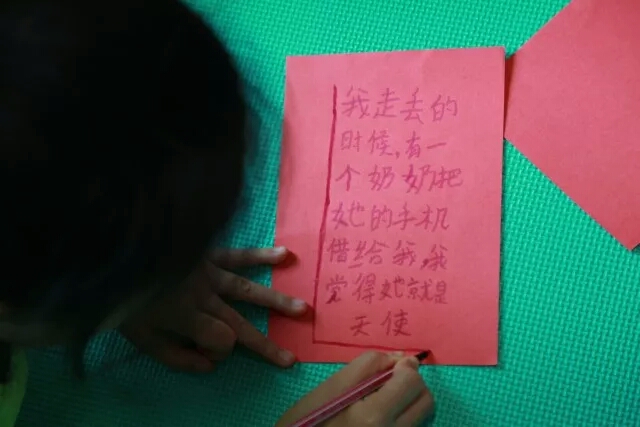 我走丢的
时候,有一
个奶奶把
她的手机
借给我,我
觉得她就是
天使